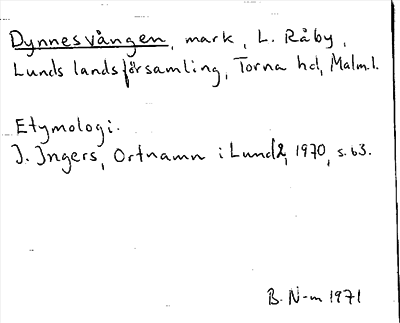 Dynnesvången, mark, L. Råby,
Lunds landsförsamling, Torna hd, Malm. l.
Etymologi.
J. Ingers, Ortnamn i Lund 2, 1970, s. 63.
B. N-m 1971